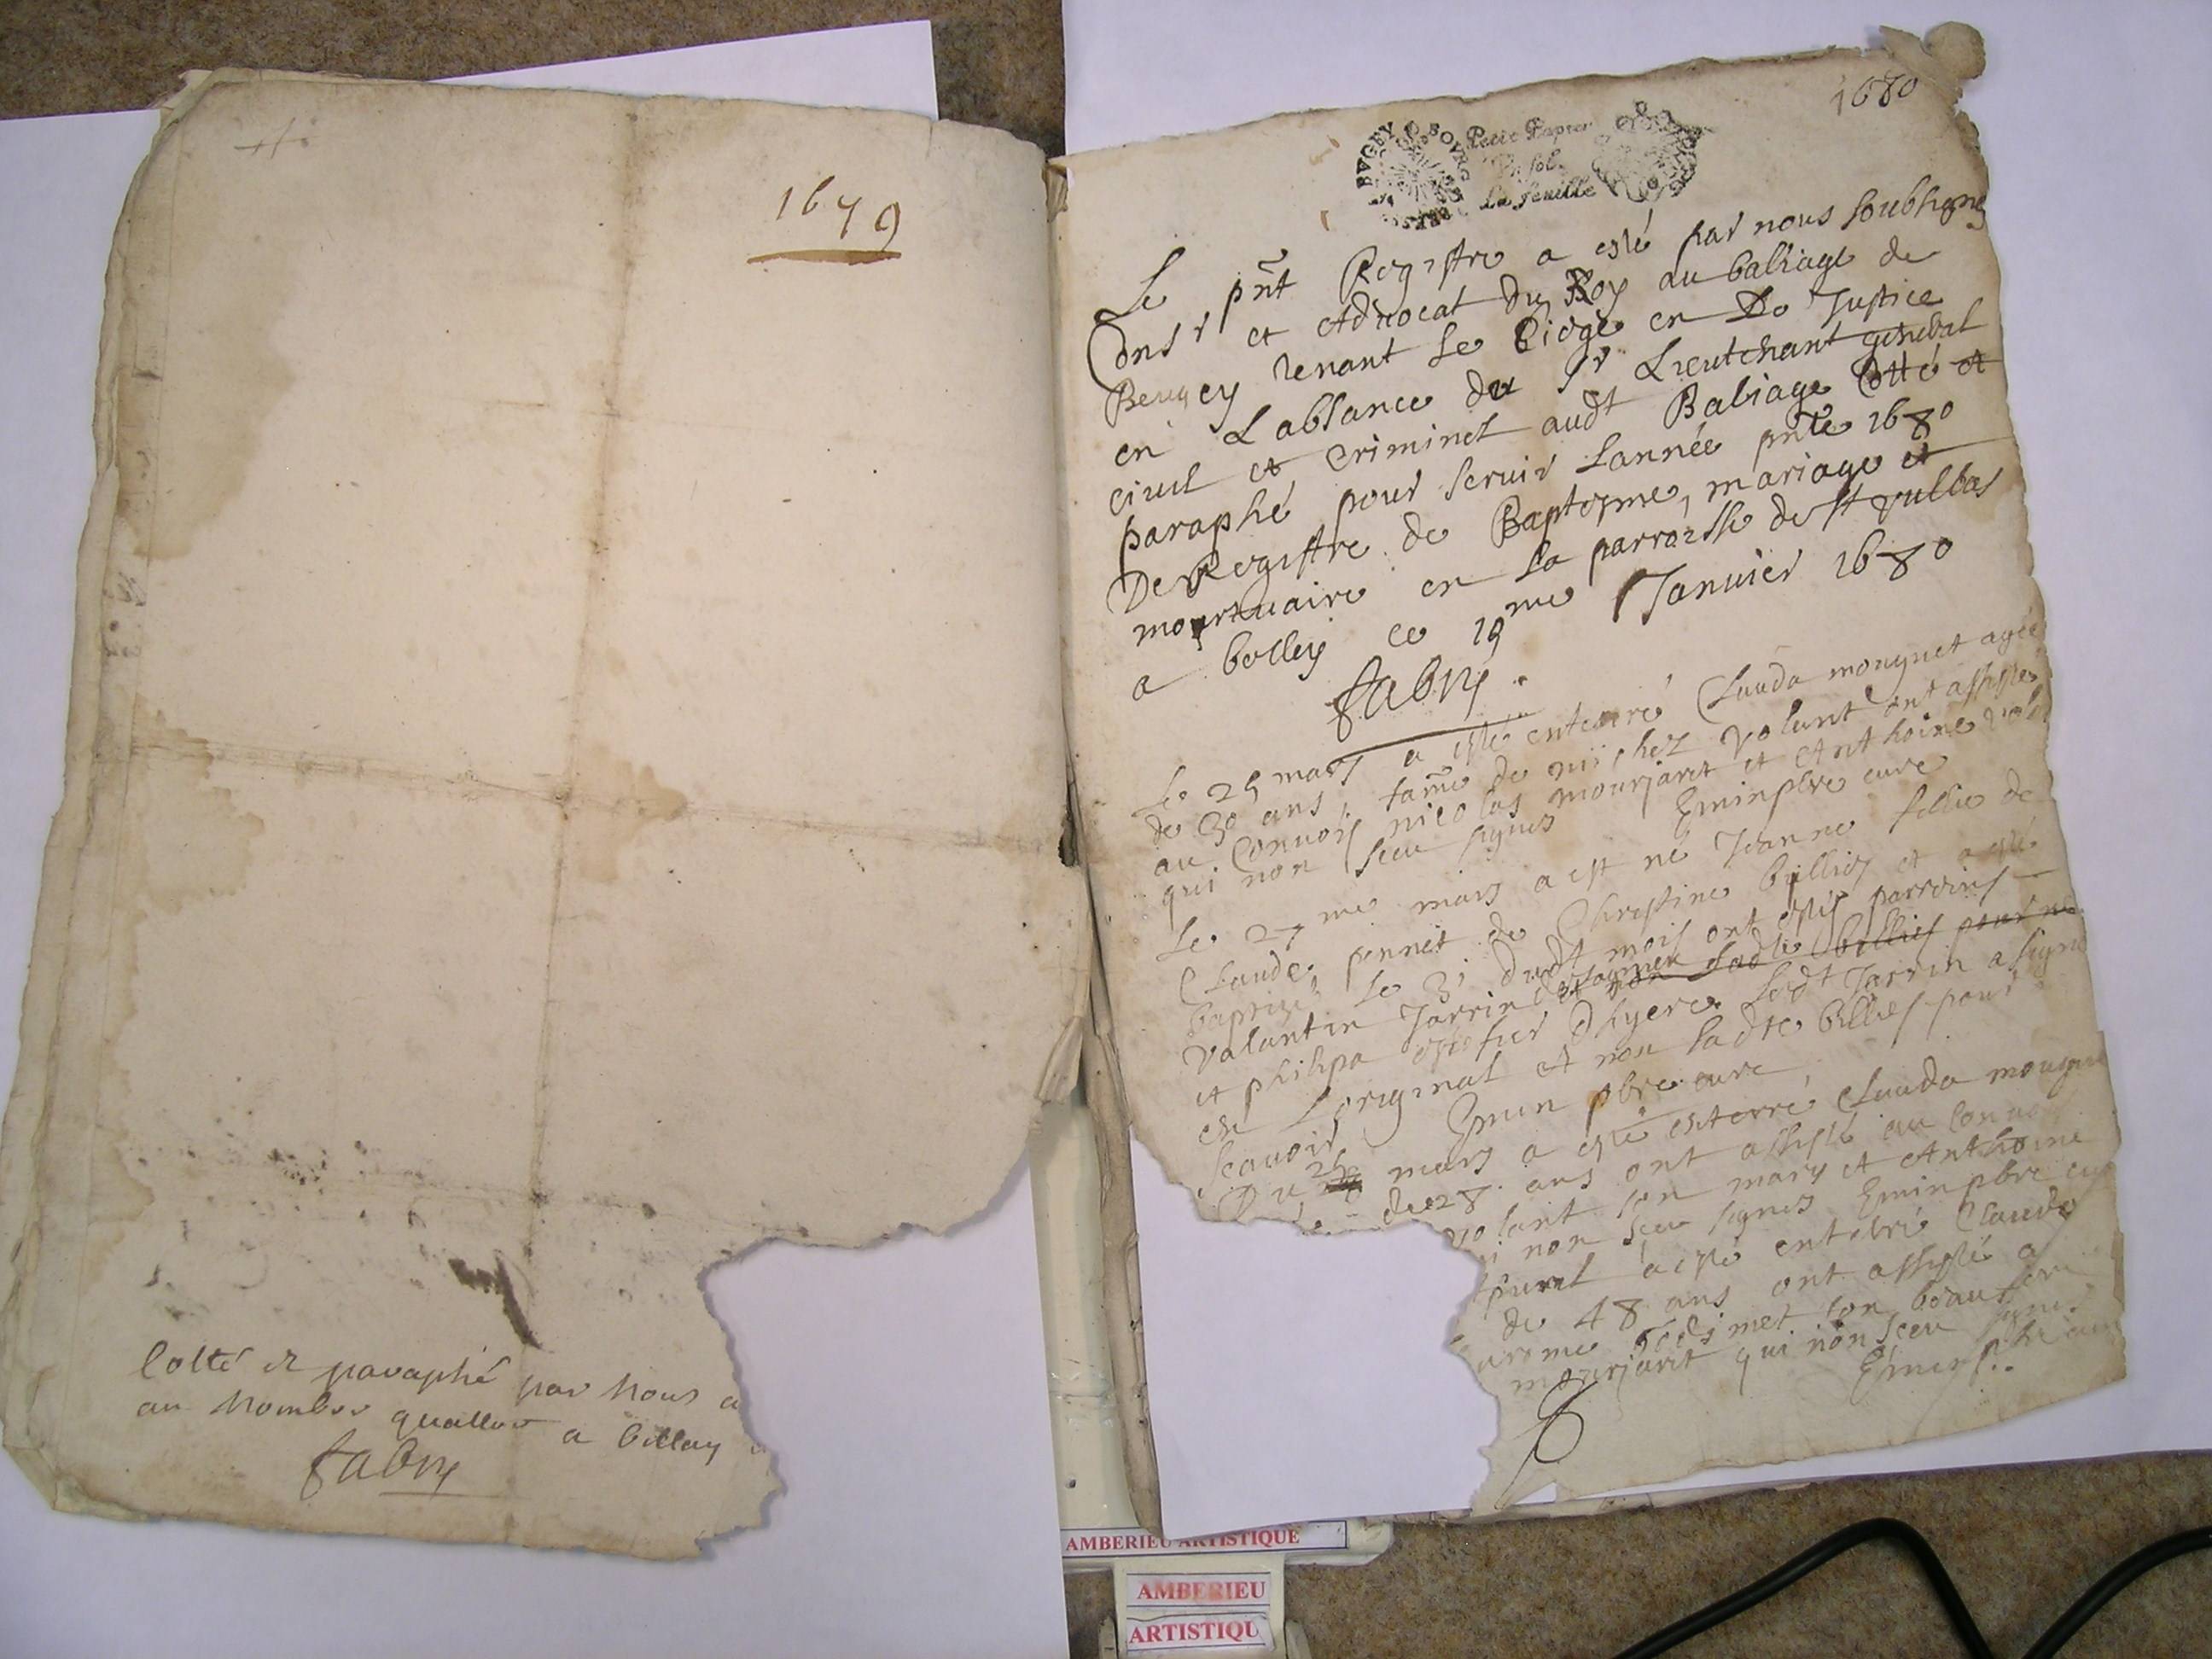 1679
Cotté et paraphé par Nous a
au Nombre quattre a Bellay
Fabry
1680
BVGEY BOVRG
Petit Papier
Un sol
La feuille
Le pnt Registre a esté par nous soubsigné
Consr et Advocat du Roy au balliage de
Beugey tenant le Siege en La Justice
en L'absance du Sr Lieutenant general
civil et Criminel audt Baliage Cotté et
paraphé pour servir Lannée pnte 1680
De Registre de Baptesme, mariage et
mourtuaire en la parroisse de St Vulbas
a belley ce 19me Janvier 1680
Fabry.
Le 25 mars a esté enterré Clauda mougnet agée
de 30 ans, fame de michez Volant ont assisté
au Convoij nicolas mourjaret et Anthoine
qui non sceu signes Emin pbre cure
Le 27me mars a est né Jeanne fillie de
Claude pennet de Christine billiez et a esté
baptizé le 31 dudt mois ont estés parroins
Valantin Jarrin et non ladte billiez pour ne
et philipa dhyere ledt Jarrin a signé
en Loriginal et non ladte billies pour
scavoir Emin pbre cure
Du 25 mars a esté enterré Clauda mougnet
de 28 ans ont assisté au Convoij
volant son mary et Anthoine
i non sceu signes Emin pbre cu
purel a esté enterré Claude
de 48 ans ont assisté a
urome Jolimet son beaufrere
mourjaret qui non sceu signé.
Emin pbre cur
AMBERIEU ARTISTIQUE
AMBERIEU
ARTISTIQU